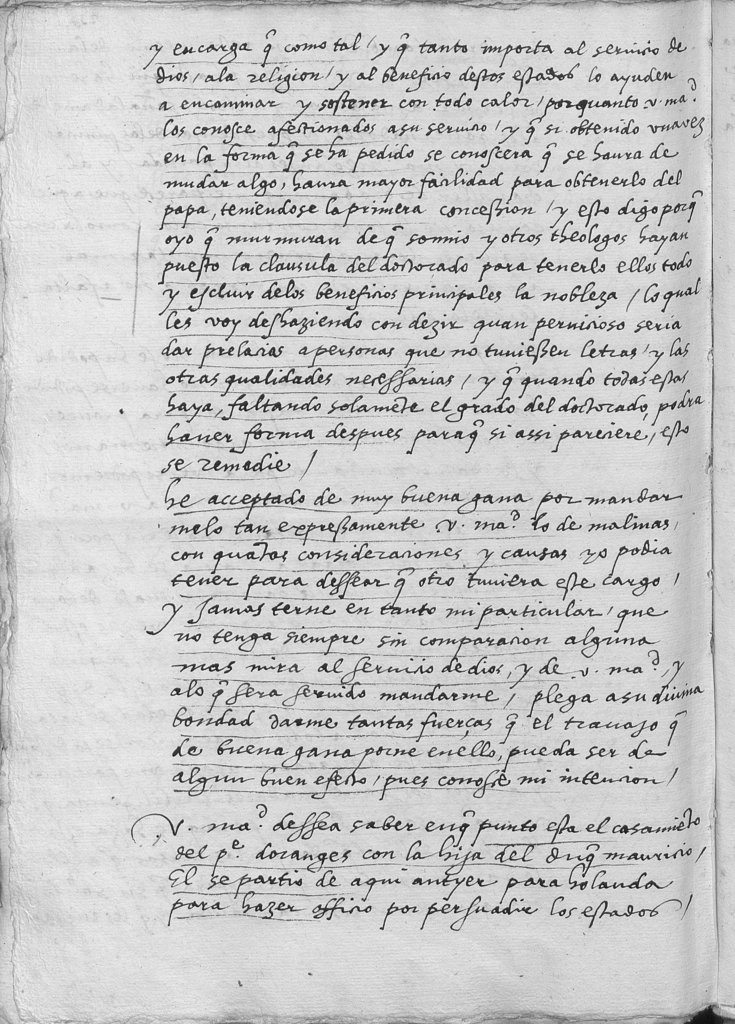 y encarga q̃ como tal / y q̃ tanto importa al servicio de
dios / ala religion / y al beneficio destos estados lo ayuden
a encaminar y sostener con todo calor / porquanto v. ma.d
los conosce afectionados asu servicio / y q̃ si obtenido vnavez
en la forma q̃ se ha pedido se conoscera q̃ se haura de
mudar algo, haura mayor facilidad para obtenerlo del
papa, teniendose la primera concession / y esto digo porq̃
oyo q̃ murmuran de q̃ somnio y otros theologos hayan
puesto la clausula del doctorado para tenerlo ellos todo
y escluir delos beneficios principales la nobleza / lo qual
les voy deshaziendo con dezir quan pernicioso seria
dar prelacias apersonas que no tuviessen letras / y las
otras qualidades necessarias / y q̃ quando todas estas
haya, faltando solamẽte el grado del doctorado, podra
haver forma despues paraq̃ si assi pareciere, esto
se remedie /
he acceptado de muy buena gana por mandar
melo tan expressamente v. ma.d lo de malinas,
con quãtas consideraciones y causas yo podia
tener para dessear q̃ otro tuviera este cargo /
y Jamas terne en tanto mi particular / que
no tenga siempre sin comparacion alguna
mas mira al servicio de dios, y de v. ma.d, y
alo q̃ sera servido mandarme / plega a su divina
bondad darme tantas fuerças q̃ el travajo q̃
de buena gana porne enello, pueda ser de
algun buen efecto / pues conosce mi intencion /
V. ma.d dessea saber enq̃ punto esta el casamiẽto
del p.e doranges con la hija del duq̃ mauricio /
El se partio de aqui antyer para holanda
para hazer officio por persuadir los estados /